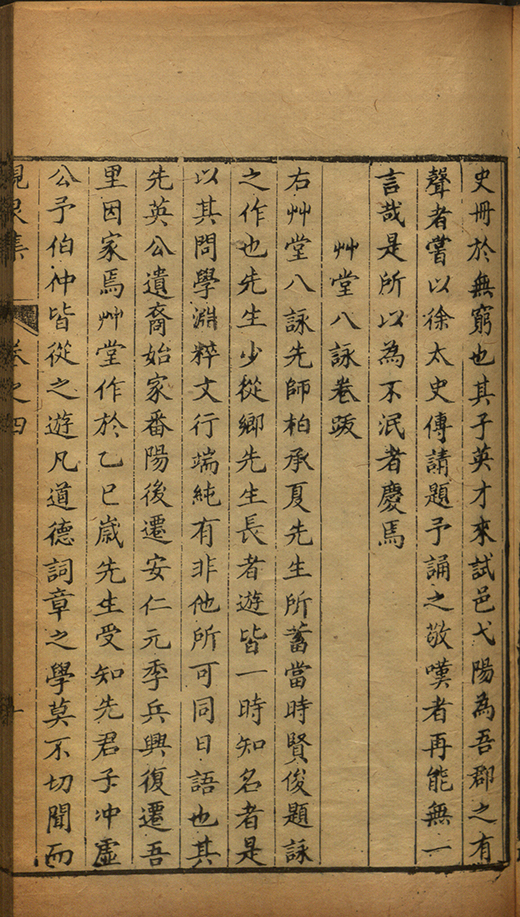 史冊於無窮也其子英才來試邑弋陽為吾郡之有
聲者嘗以徐太史傳請題予誦之敬嘆者再能無一
言哉是所以為不泯者慶焉
艸堂八詠卷跋
右艸堂八詠先師柏承夏先生所蓄當時賢俊題詠
之作也先生少從鄉先生長者遊皆一時知名者是
以其問學淵粹文行端純有非他所可同日語也其
先英公遺裔始家番陽後遷安仁元季兵興復遷吾
里因家焉艸堂作於乙巳歲先生受知先君子冲虛
公予伯仲皆從之遊凡道德詞章之學莫不切聞而
峴泉集 卷之四